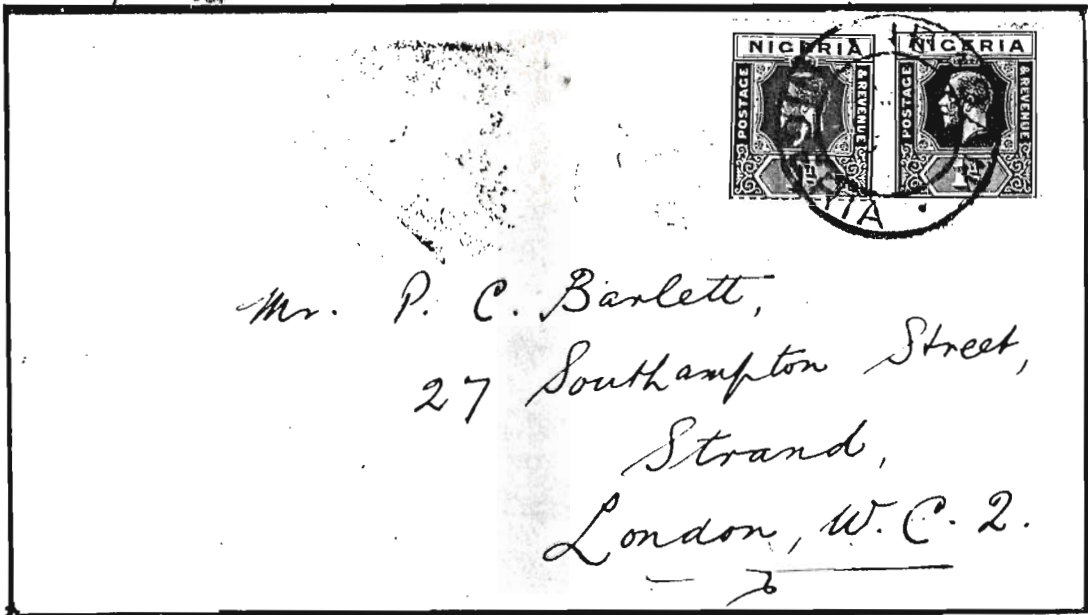 NIGERIA NIGERIA
POSTAGE & REVENUE POSTAGE & REVENUE
1D
Mr. P. C. Barlett,
27 Southampton Street,
Strand,
London, W.C.2.